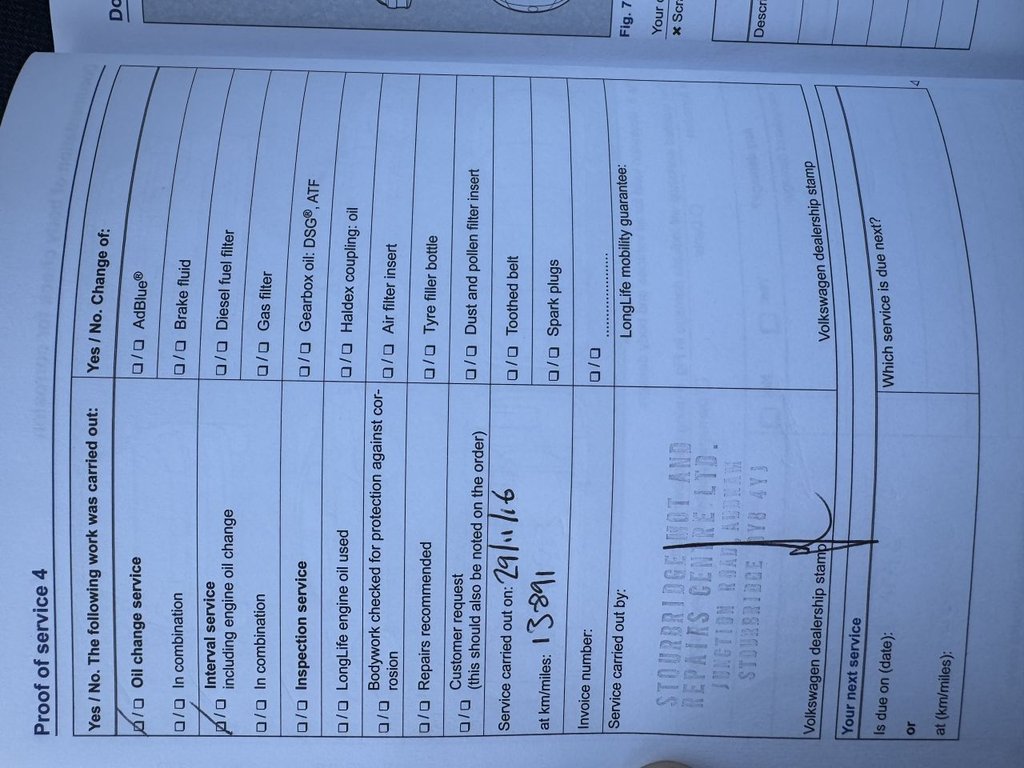 Proof of service 4
Yes / No. The following work was carried out:
☐ / ☐ Oil change service
☐ / ☐ In combination
☐ / ☐ Interval service
including engine oil change
☐ / ☐ In combination
☐ / ☐ Inspection service
☐ / ☐ LongLife engine oil used
☐ / ☐ Bodywork checked for protection against cor-
rosion
☐ / ☐ Repairs recommended
☐ / ☐ Customer request
(this should also be noted on the order)
Service carried out on: 29/11/16
at km/miles: 13891
Invoice number:
Service carried out by:
STOURBRIDGE MOT AND
REPAIRS CENTRE LTD.
JUNCTION ROAD,
STOURBRIDGE DY8 4YJ
Volkswagen dealership stamp
Yes / No. Change of:
☐ / ☐ AdBlue®
☐ / ☐ Brake fluid
☐ / ☐ Diesel fuel filter
☐ / ☐ Gas filter
☐ / ☐ Gearbox oil: DSG®, ATF
☐ / ☐ Haldex coupling: oil
☐ / ☐ Air filter insert
☐ / ☐ Tyre filler bottle
☐ / ☐ Dust and pollen filter insert
☐ / ☐ Toothed belt
☐ / ☐ Spark plugs
☐ / ☐ ....................
LongLife mobility guarantee:
Volkswagen dealership stamp
Your next service
Is due on (date):
or
at (km/miles):
Which service is due next?
Do
Fig. 7
Your
× Scr
Descr